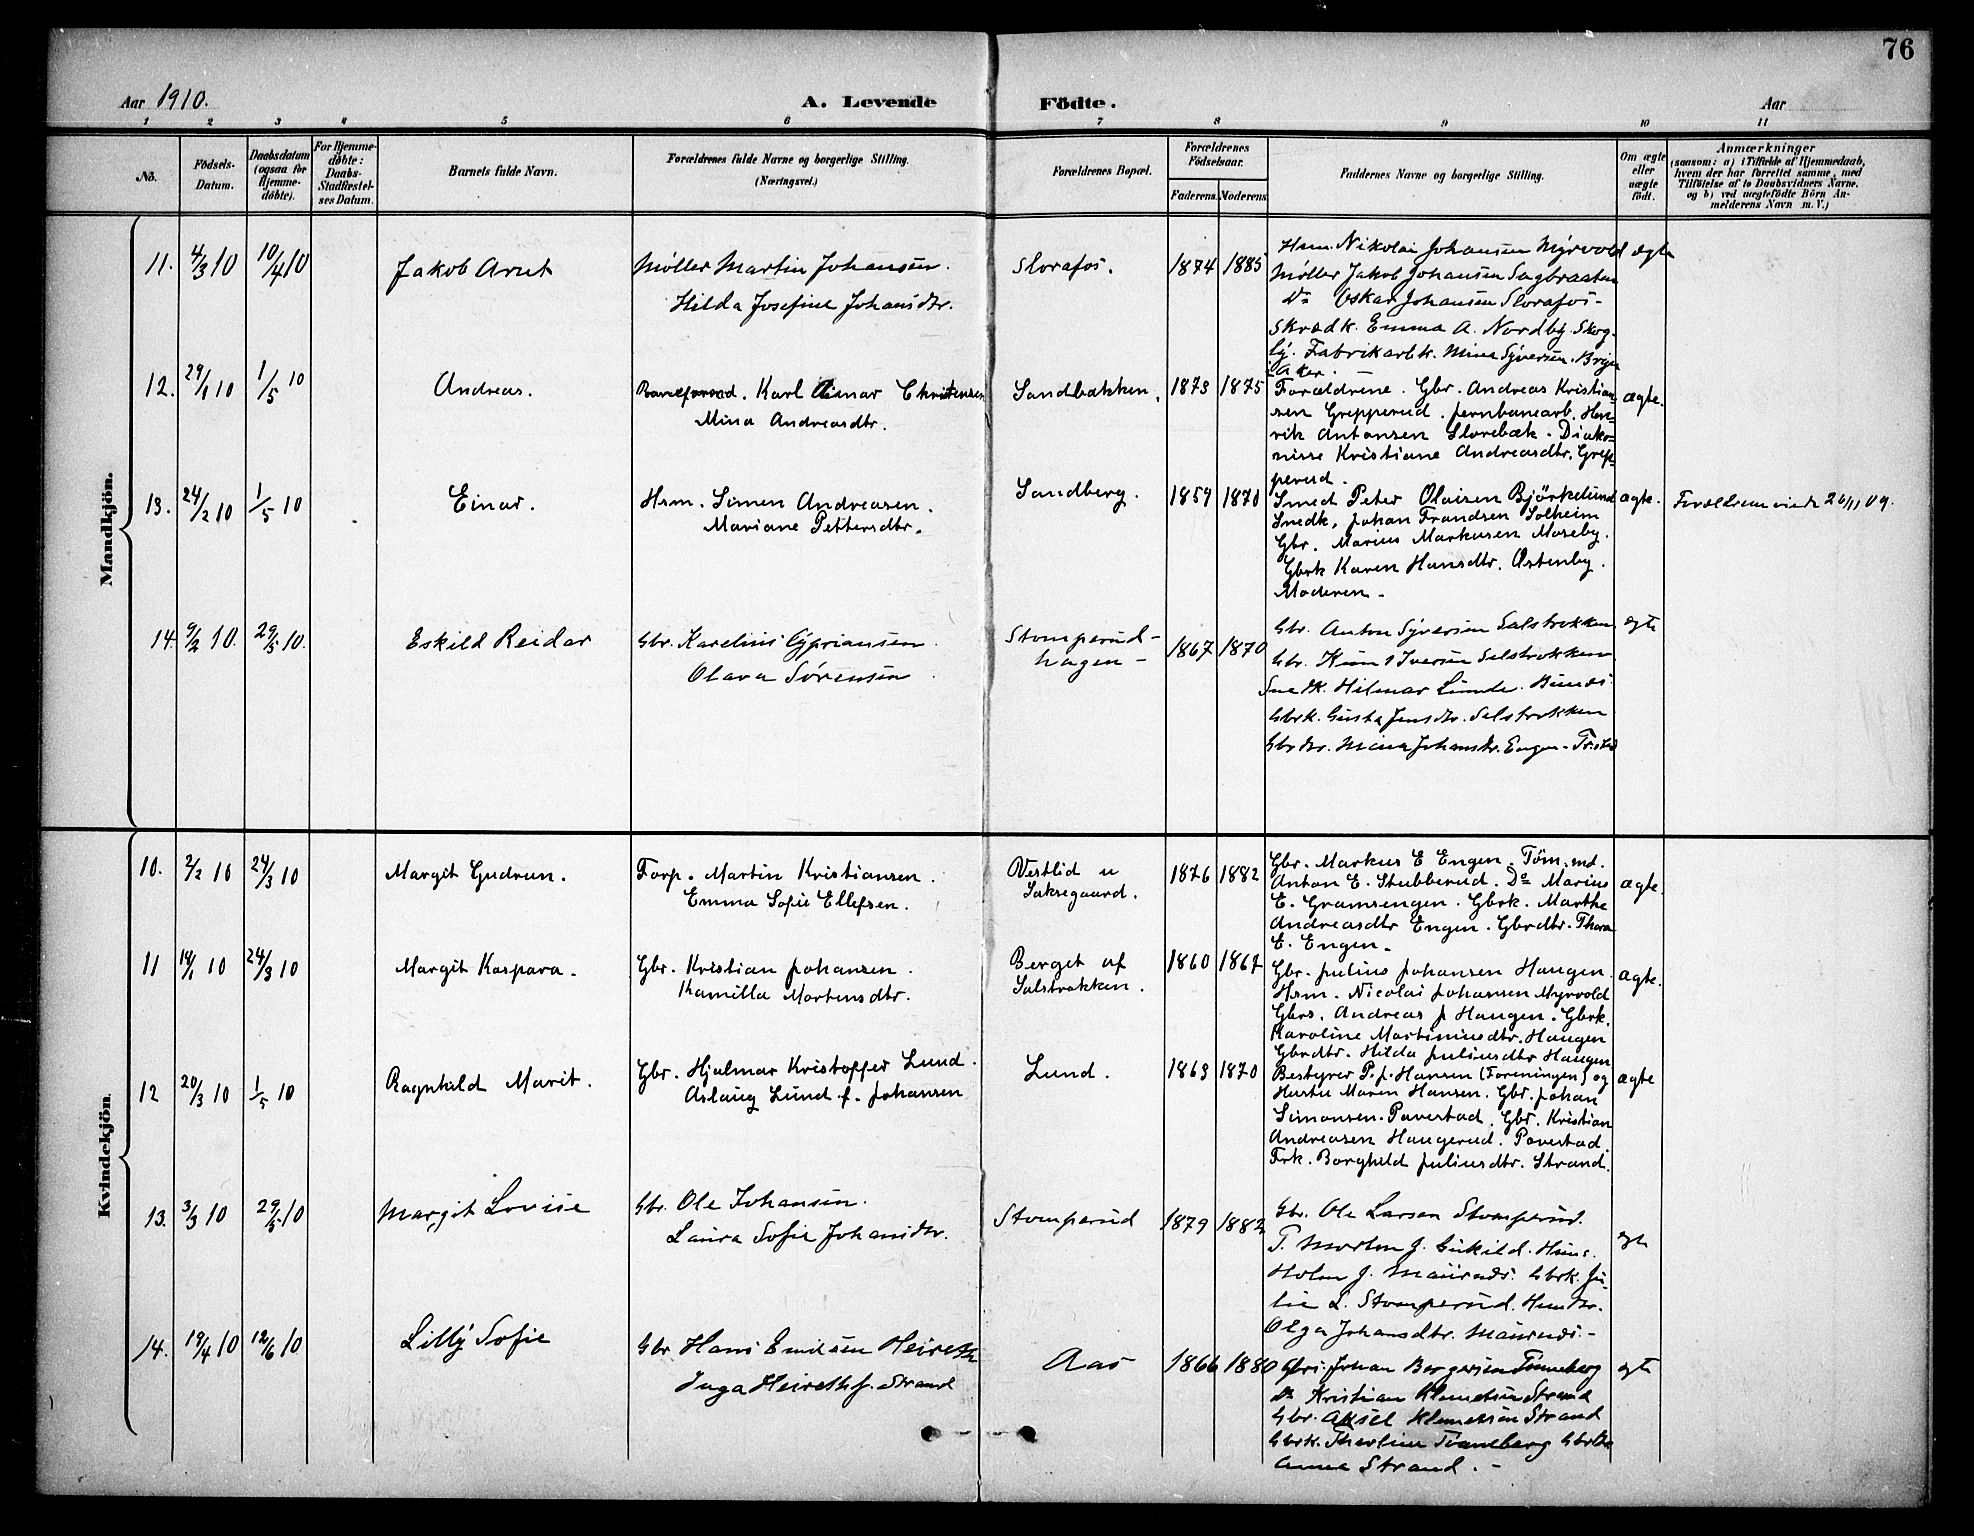 76
Aar 1910.
A. Levende Födte.
Aar
1 2 3 4 5 6 7 8 9 10 11
No.
Födsels-Datum.
Daabsdatum (ogsaa for Hjemme-döbte).
For Hjemme-döbte: Daabs-Stadfæstel-ses Datum.
Barnets fulde Navn.
Forældrenes fulde Navne og borgerlige Stilling.
(Næringsvei.)
Forældrenes Bopæl.
Forældrenes Födselsaar.
Faderens. Moderens.
Faddernes Navne og borgerlige Stilling.
Om ægte eller uægte födt.
Anmærkninger
(saasom: a) i Tilfælde af Hjemmedaab,
hvem der har forrettet samme, med
Tilföielse af to Daabsvidners Navne.
og b) ved uægtefödte Börn An-
melderens Navn m. V.)
Mandkjön.
11. 4/3 10 10/4 10 Jakob Arnt
Møller Martin Johansen.
Hilda Josefine Johansdtr.
Slorafos. 1874 1885
Hsm. Nikolai Johansen Myrvold ægte
Møller Jakob Johansen Sagbraaten
Do Oskar Johansen Slorafos-
Skrædk. Emma A. Nordby. Skog-
by. Fabrikarbk. Mina Syversen. Bryn
Aker.
12. 29/1 10 1/5 10 Andreas.
Karl Einar Christensen
Mina Andreasdtr.
Sandbakken. 1873 1875
Forældrene. Gbr. Andreas Kristian-
sen Grepperud. jernbanearb. Hen-
rik Antonsen Slorebæk. Diako-
nisse Kristiane Andreasdtr. Grep-
perud.
ægte.
13. 24/2 10 1/5 10 Einar.
Hsm. Simen Andreasen.
Mariane Pettersdtr.
Sandberg. 1859 1870
Smed Peter Olaisen Bjørkelund
Snedk. Johan Frandsen Solheim
Gbr. Marius Markusen Moseby.
Gbrk Karen Hansdtr. Østenby.
Moderen.-
ægte. Forældrene viede 26/11 09.
14. 9/2 10. 29/5 10. Eskild Reidar
Gbr. Karelius Cypriansen.
Olava Sørensen
Stomperud-
hagen- 1867 1870
Gbr. Anton Syversen Salstrokken
Gbr. Knut Iversen Selstrokken
Snedk. Hilmar Linde. Bunes.
Gbrk. Gusta Jensdtr. Selstrokken
Gbrdtr. Mina Johansdtr. Engen-
ægte
Kvindekjön.
10. 2/2 10 24/3 10 Margit Gudrun.
Forp. Martin Kristiansen.
Emma Sofie Ellefsen.
Vestlid u
Saksegaard. 1876 1882
Gbr. Markus E Engen. Töm.md.
Anton E. Stubberud. Do Marius
E. Gramsengen. Gbrk. Marthe
Andreasdtr Engen. Gbrdtr. Thora
E. Engen.
ægte.
11 14/1 10 24/3 10 Margit Kaspara.
Gbr. Kristian Johansen.
Kamilla Mortensdtr.
Berget af
Salstrokken. 1860 1867
Gbr. Julius Johansen Haugen.
Hsm. Nicolai Johansen Myrvold
Gbrs. Andreas J Haugen. Gbrk.
Karoline Martiniusdtr. Haugen
Gbrdtr. Hilda Juliusdtr Haugen
ægte.
12 20/3 10 1/5 10 Ragnhild Marit.
Gbr. Hjalmar Kristoffer Lund.
Aslaug Lund f. Johansen
Lund. 1863 1870
Bestyrer P. J. Hansen (Foreningen) og
Hustru Maren Hansen. Gbr. Johan
Simonsen. Paverstad. Gbr. Kristian
Andreasen Haugerud. Paverstad.
Frk. Borghild Juliusdtr. Strand.
ægte
13. 3/3 10 29/5 10 Margit Lovise
Gbr. Ole Johansen.
Laura Sofie Johansdtr.
Stomperud 1879 1882
Gbr. Ole Larsen Stomperud.
Morten J.
Holm J. Gbrk. Ju-
lie L. Stomperud.
Olga Johansdtr.
ægte
14. 19/4 10 12/6 10 Lilly Sofie
Gbr Hans Emilsen Heireth
Inga Heireth f. Strand
Aas 1866 1880
Johan Borgersen Tonneberg
Do Kristian Klemetsen Strand
Gbr. Aksel Klemetsen Strand
Gbrk. Tonneberg Gbrdtr
Anna Strand.-
ægte